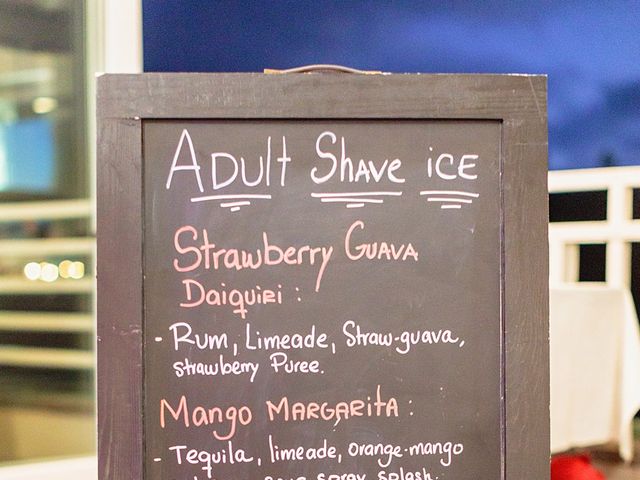 Adult Shave ice
Strawberry Guava
Daiquiri :
- Rum, Limeade, Straw-guava,
strawberry Puree.
Mango Margarita :
- Tequila, limeade, orange-mango
splash.